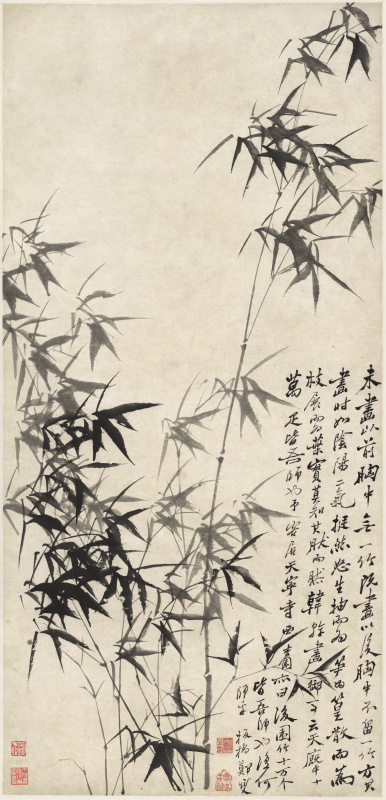 未畫以前胸中無一竹既畫以後胸中不留一竹方其
畫時如陰陽二氣挺然怒生抽而為笋為篁散而為
枝展而為葉實莫知其然而然韓幹畫御馬云天厩中十
萬疋皆吾師也予客居天寧寺西杏園亦曰後園竹十萬个
皆吾師也復何
師乎板橋鄭燮